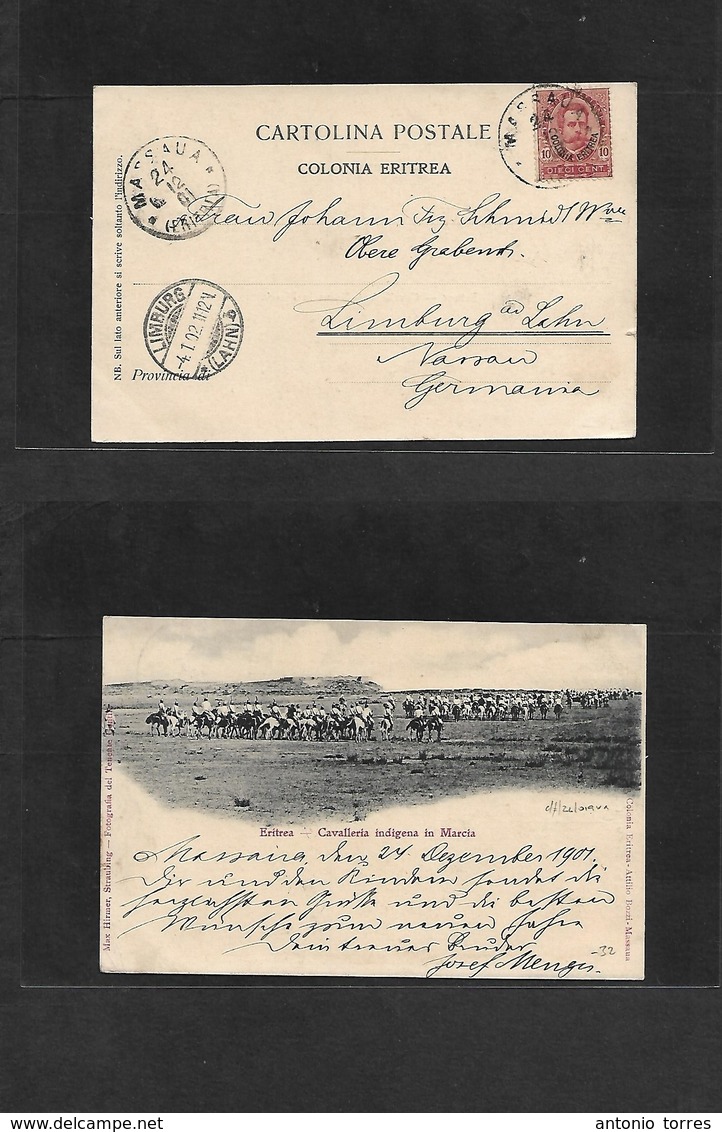 CARTOLINA POSTALE
COLONIA ERITREA
NB. Sul lato anteriore si scrive soltanto l'indirizzo.
MASSAUA
24
(ERITREA)
MASSAUA
COLONIA ERITREA
10 10
DIECI CENT.
Frau Johann Frz. Schmidt Wwe
Obere Grabenstr.
Limburg ad Lahn
Nassau
Germania
LIMBURG
-4.1.02.11-12V.
* (LAHN) a
Provincia di
Max Hirmer, Straubing — Fotografia del Tenente
Eritrea — Cavalleria indigena in Marcia
Colonia Eritrea - Attilio Bozzi - Massaua
Massaua, den 24. Dezember 1901.
Dir und den Kindern sendet die
herzlichsten Grüße und die besten
Wünsche zum neuen Jahre
Dein treuer Bruder
Josef Menges.
-32
antonio torres